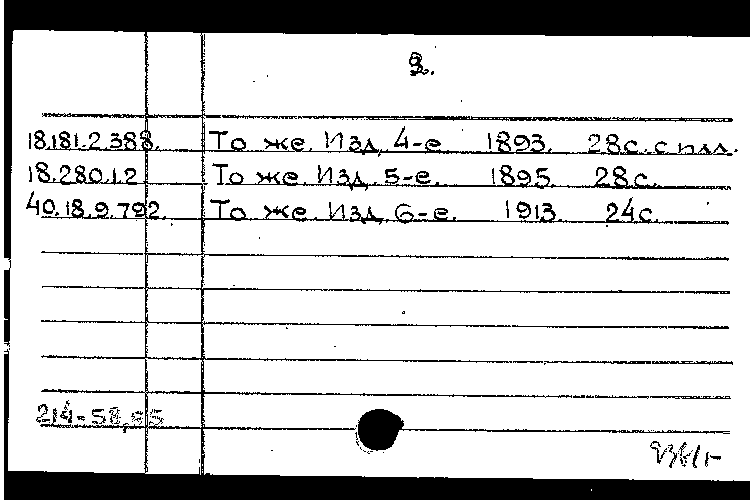 2.
18.181.2.388. То же. Изд. 4-е. 1893. 28с. с илл.
18.280.1.2 То же. Изд. 5-е. 1895. 28с.
40.18.9.792. То же. Изд. 6-е. 1913. 24с.